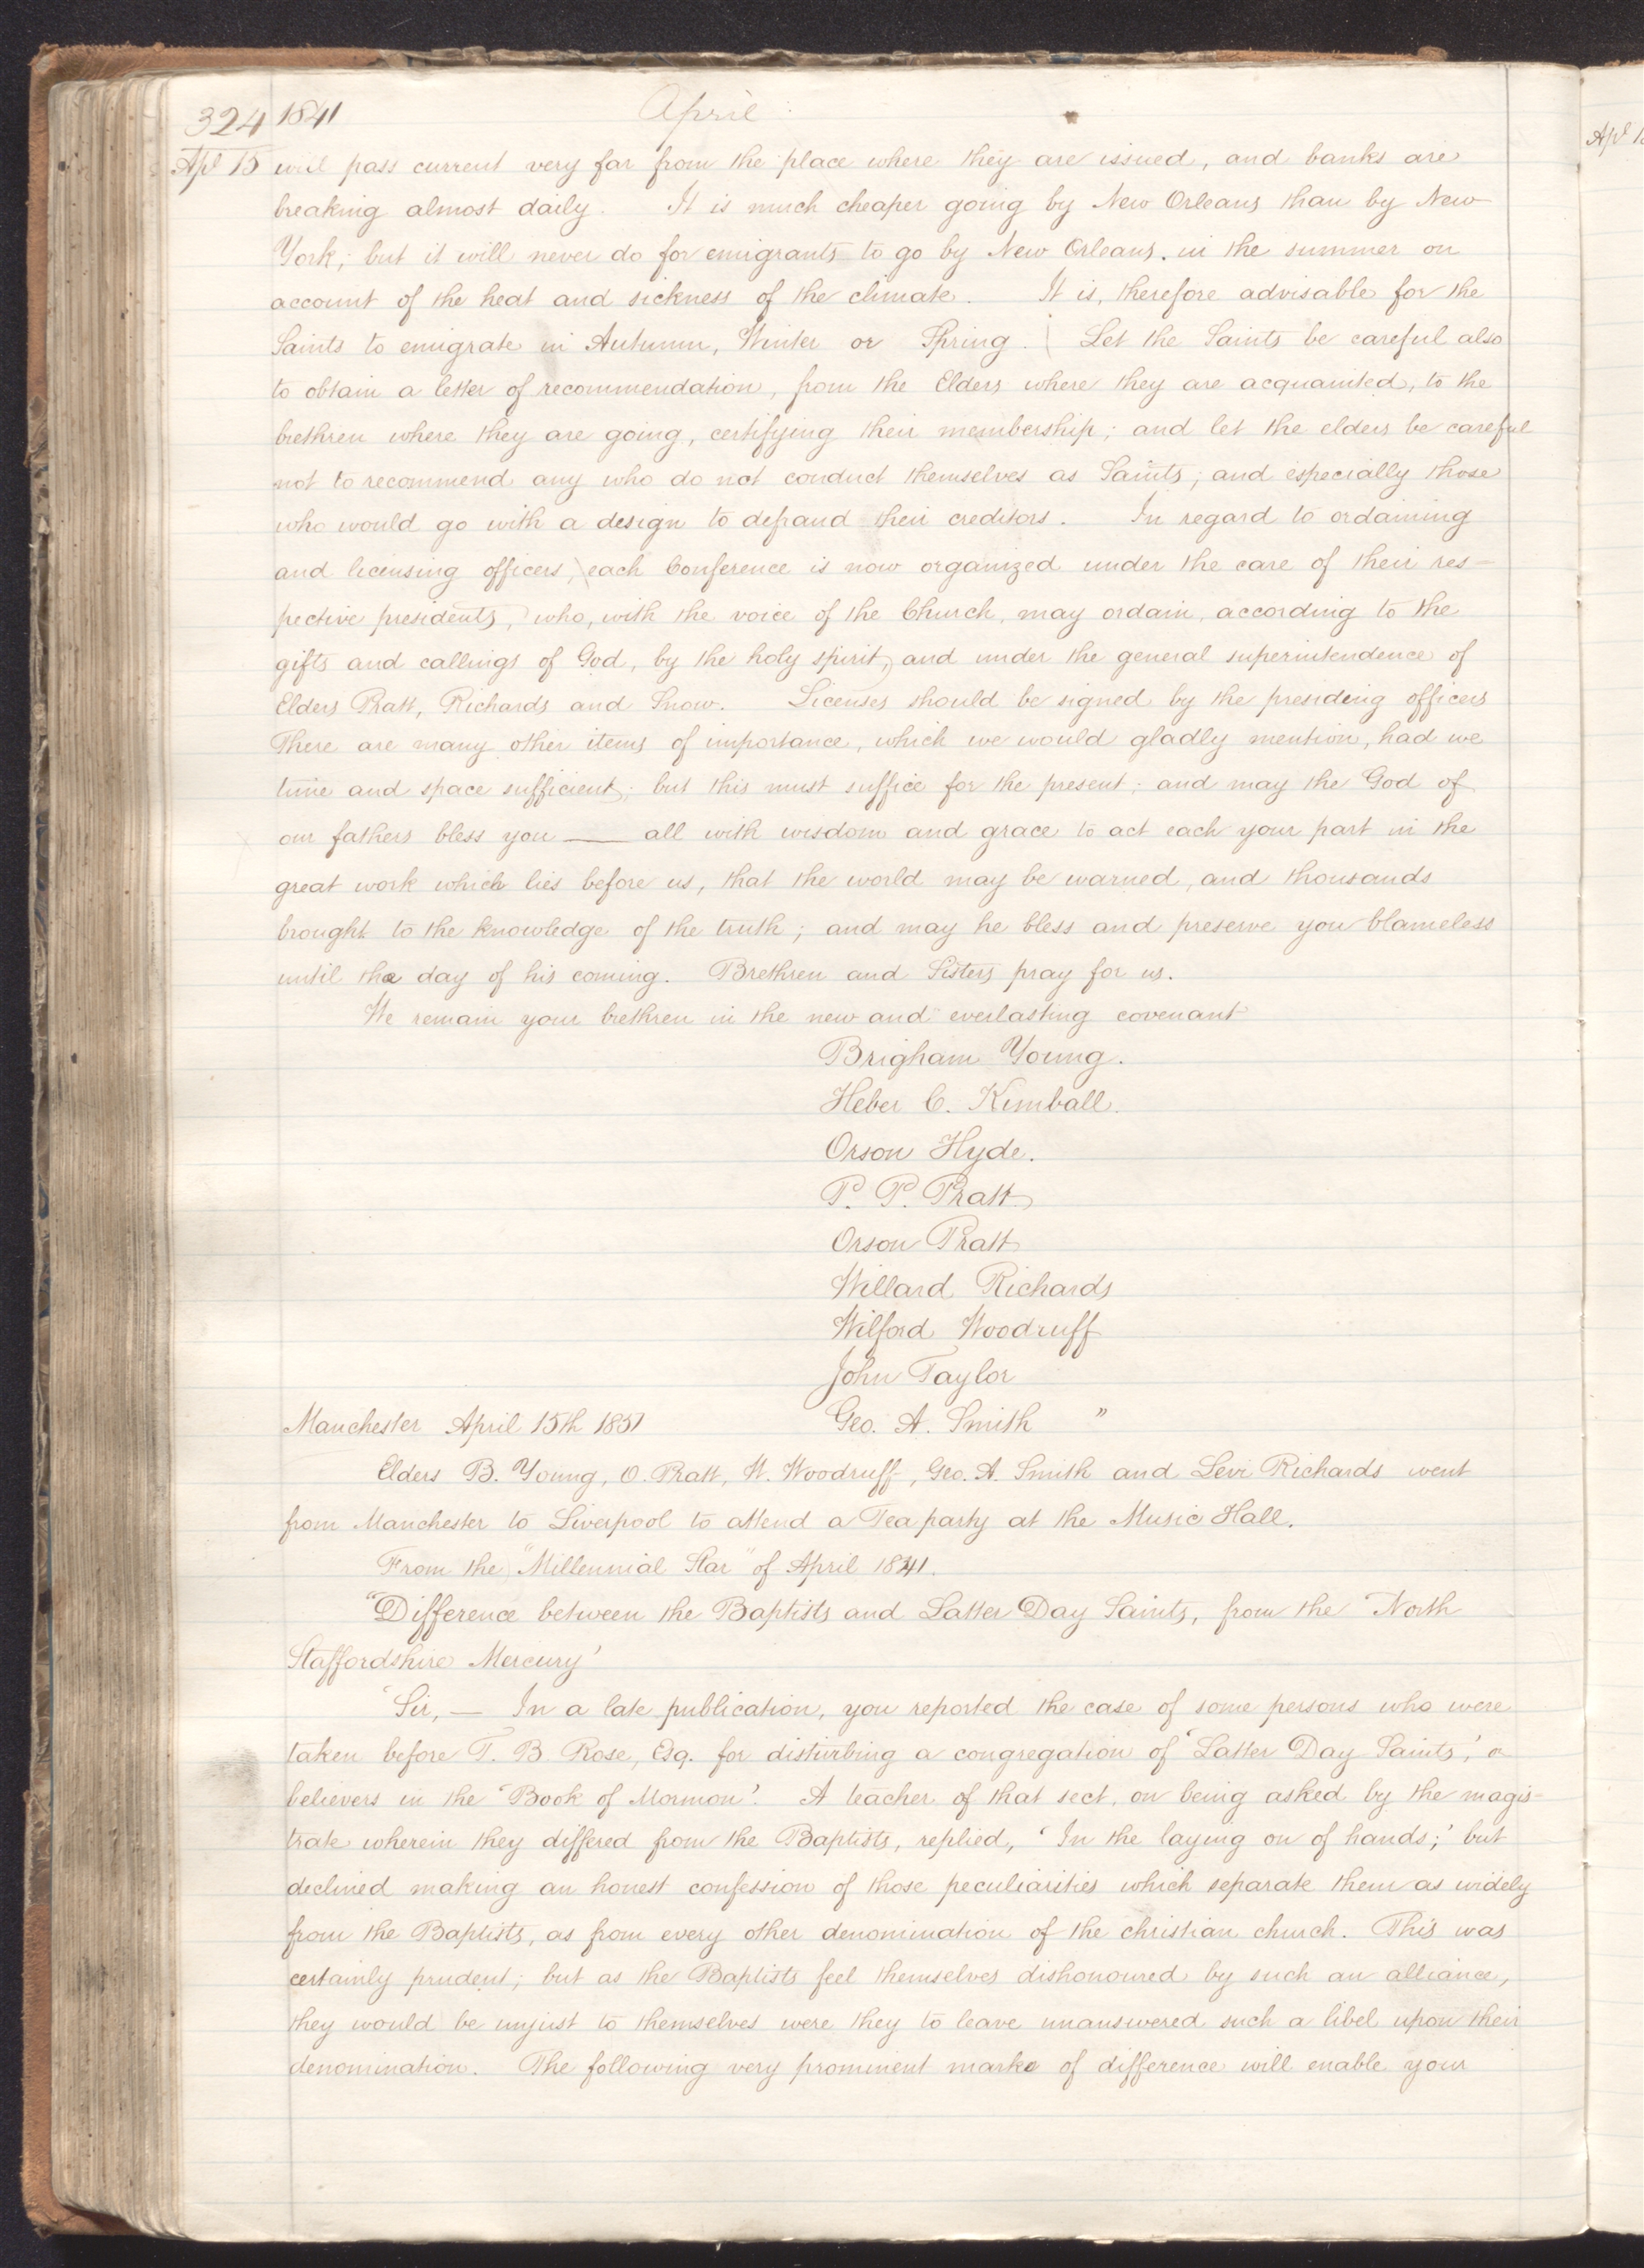 324 1841 April
Apl 15 will pass current very far from the place where they are issued, and banks are
breaking almost daily. It is much cheaper going by New Orleans than by New
York; but it will never do for emigrants to go by New Orleans. in the summer on
account of the heat and sickness of the climate. It is, therefore advisable for the
Saints to emigrate in Autumn, Winter or Spring. Let the Saints be careful also
to obtain a letter of recommendation, from the Elders where they are acquainted, to the
brethren where they are going, certifying their membership; and let the elders be careful
not to recommend any who do not conduct themselves as Saints; and especially those
who would go with a design to defraud their creditors. In regard to ordaining
and licensing officers, each Conference is now organized under the care of their res=
pective presidents, who, with the voice of the Church, may ordain, according to the
gifts and callings of God, by the holy spirit, and under the general superintendence of
Elders Pratt, Richards and Snow. Licenses should be signed by the presiding officers
There are many other items of importance, which we would gladly mention, had we
time and space sufficient; but this must suffice for the present; and may the God of
our fathers bless you —— all with wisdom and grace to act each your part in the
great work which lies before us, that the world may be warned, and thousands
brought to the knowledge of the truth; and may he bless and preserve you blameless
until the day of his coming. Brethren and Sisters pray for us.
We remain your brethren in the new and everlasting covenant
Brigham Young.
Heber C. Kimball.
Orson Hyde.
P. P. Pratt
Orson Pratt
Willard Richards
Wilford Woodruff
John Taylor
Manchester April 15th 1851 Geo. A. Smith "
Elders B. Young, O. Pratt, W. Woodruff, Geo. A. Smith and Levi Richards went
from Manchester to Liverpool to attend a Tea party at the Music Hall.
From the "Millennial Star" of April 1841.
"Difference between the Baptists and Latter Day Saints, from the 'North
Staffordshire Mercury'
'Sir, — In a late publication, you reported the case of some persons who were
taken before T. B. Rose, Esq. for disturbing a congregation of 'Latter Day Saints,' or
believers in the 'Book of Mormon'. A teacher of that sect, on being asked by the magis=
trate wherein they differed from the Baptists, replied, 'In the laying on of hands;' but
declined making an honest confession of those peculiarities which separate them as widely
from the Baptists, as from every other denomination of the christian church. This was
certainly prudent; but as the Baptists feel themselves dishonoured by such an alliance,
they would be unjust to themselves were they to leave unanswered such a libel upon their
denomination. The following very prominent marks of difference will enable your
Apl 15